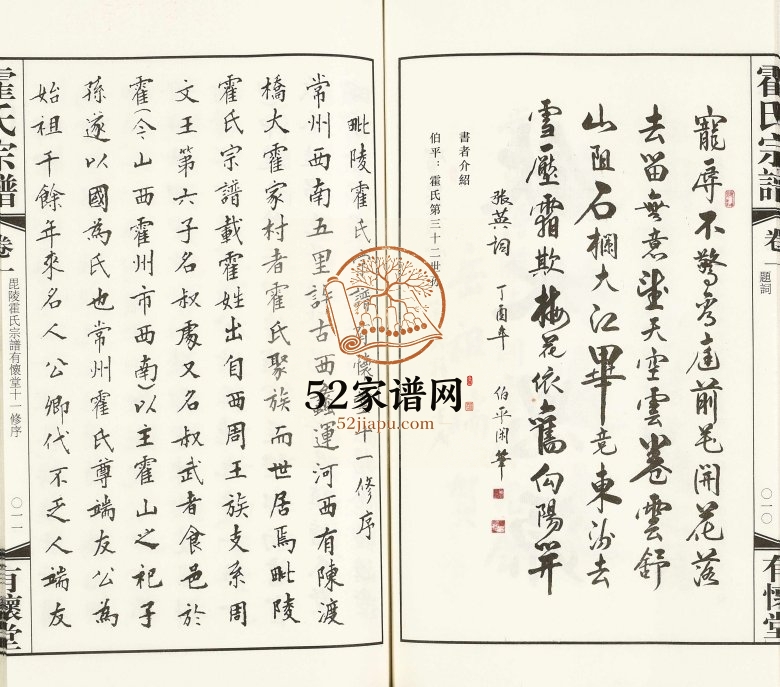 霍氏宗譜 卷一 題詞 〇一〇 有懷堂
寵辱不驚看庭前花開花落
去留無意望天空雲卷雲舒
山阻石欄大江畢竟東流去
雪壓霜欺梅花依舊向陽開
張英詞 丁酉年 伯平閑筆
書者介紹
伯平：霍氏第三十二世
毗陵霍氏宗譜有懷堂十一修序
常州西南五里許古西蠡運河西有陳渡
橋大霍家村者霍氏聚族而世居焉毗陵
霍氏宗譜載霍姓出自西周王族支系周
文王第六子名叔處又名叔武者食邑於
霍（今山西霍州市西南）以主霍山之祀子
孫遂以國為氏也常州霍氏尊端友公為
始祖千餘年來名人公卿代不乏人端友
霍氏宗譜 卷一 毘陵霍氏宗譜有懷堂十一修序 〇一一 有懷堂
52家谱网
52jiapu.com